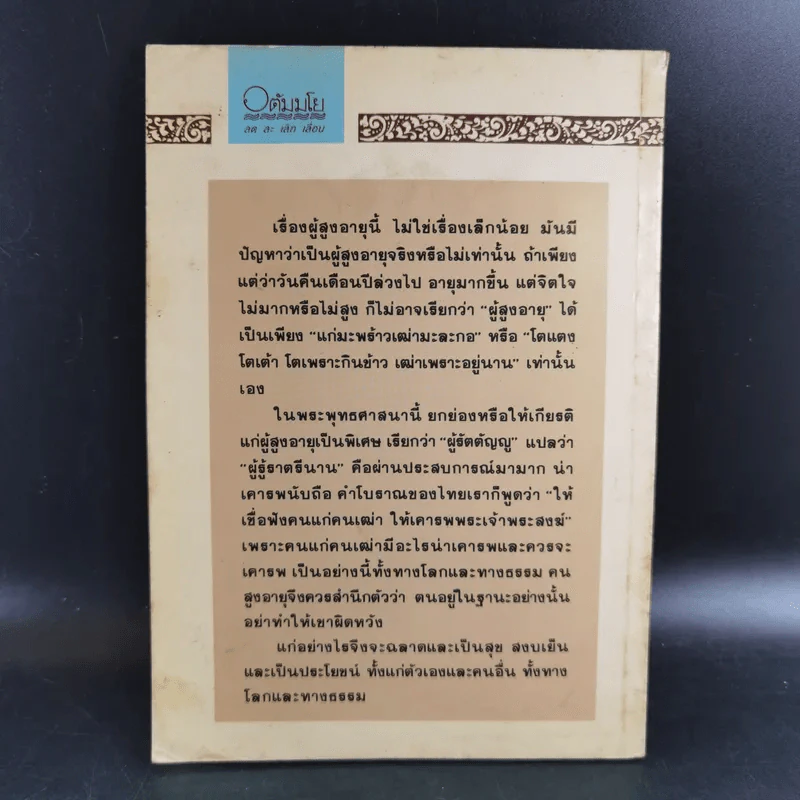 อตัมมโย
ลด ละ เลิก เลื่อน
เรื่องผู้สูงอายุนี้ ไม่ใช่เรื่องเล็กน้อย มันมี
ปัญหาว่าเป็นผู้สูงอายุจริงหรือไม่เท่านั้น ถ้าเพียง
แต่ว่าวันคืนเดือนปีล่วงไป อายุมากขึ้น แต่จิตใจ
ไม่มากหรือไม่สูง ก็ไม่อาจเรียกว่า "ผู้สูงอายุ" ได้
เป็นเพียง "แก่มะพร้าวเฒ่ามะละกอ" หรือ "โตแตง
โตเต้า โตเพราะกินข้าว เฒ่าเพราะอยู่นาน" เท่านั้น
เอง
ในพระพุทธศาสนานี้ ยกย่องหรือให้เกียรติ
แก่ผู้สูงอายุเป็นพิเศษ เรียกว่า "ผู้รัตตัญญู" แปลว่า
"ผู้รู้ราตรีนาน" คือผ่านประสบการณ์มามาก น่า
เคารพนับถือ คำโบราณของไทยเราก็พูดว่า "ให้
เชื่อฟังคนแก่คนเฒ่า ให้เคารพพระเจ้าพระสงฆ์"
เพราะคนแก่คนเฒ่ามีอะไรน่าเคารพและควรจะ
เคารพ เป็นอย่างนี้ทั้งทางโลกและทางธรรม คน
สูงอายุจึงควรสำนึกตัวว่า ตนอยู่ในฐานะอย่างนั้น
อย่าทำให้เขาผิดหวัง
แก่อย่างไรจึงจะฉลาดและเป็นสุข สงบเย็น
และเป็นประโยชน์ ทั้งแก่ตัวเองและคนอื่น ทั้งทาง
โลกและทางธรรม